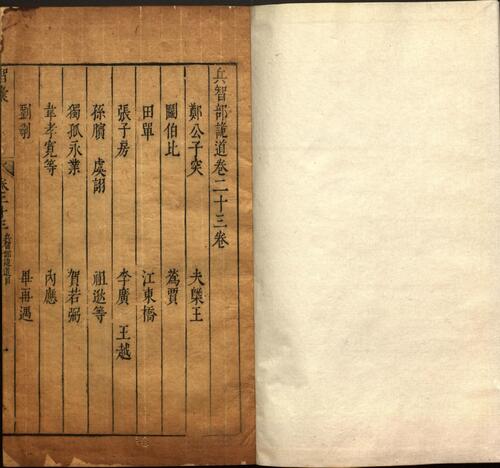 兵智部詭道卷二十三卷
鄭公子突 夫槩王
鬬伯比 蒍賈
田單 江東橋
張子房 李廣 王越
孫臏 虞詡 祖逖等
獨孤永業 賀若弼
韋孝寬等 內應
劉鄩 畢再遇
智囊 卷二十三 兵智部詭道目 一